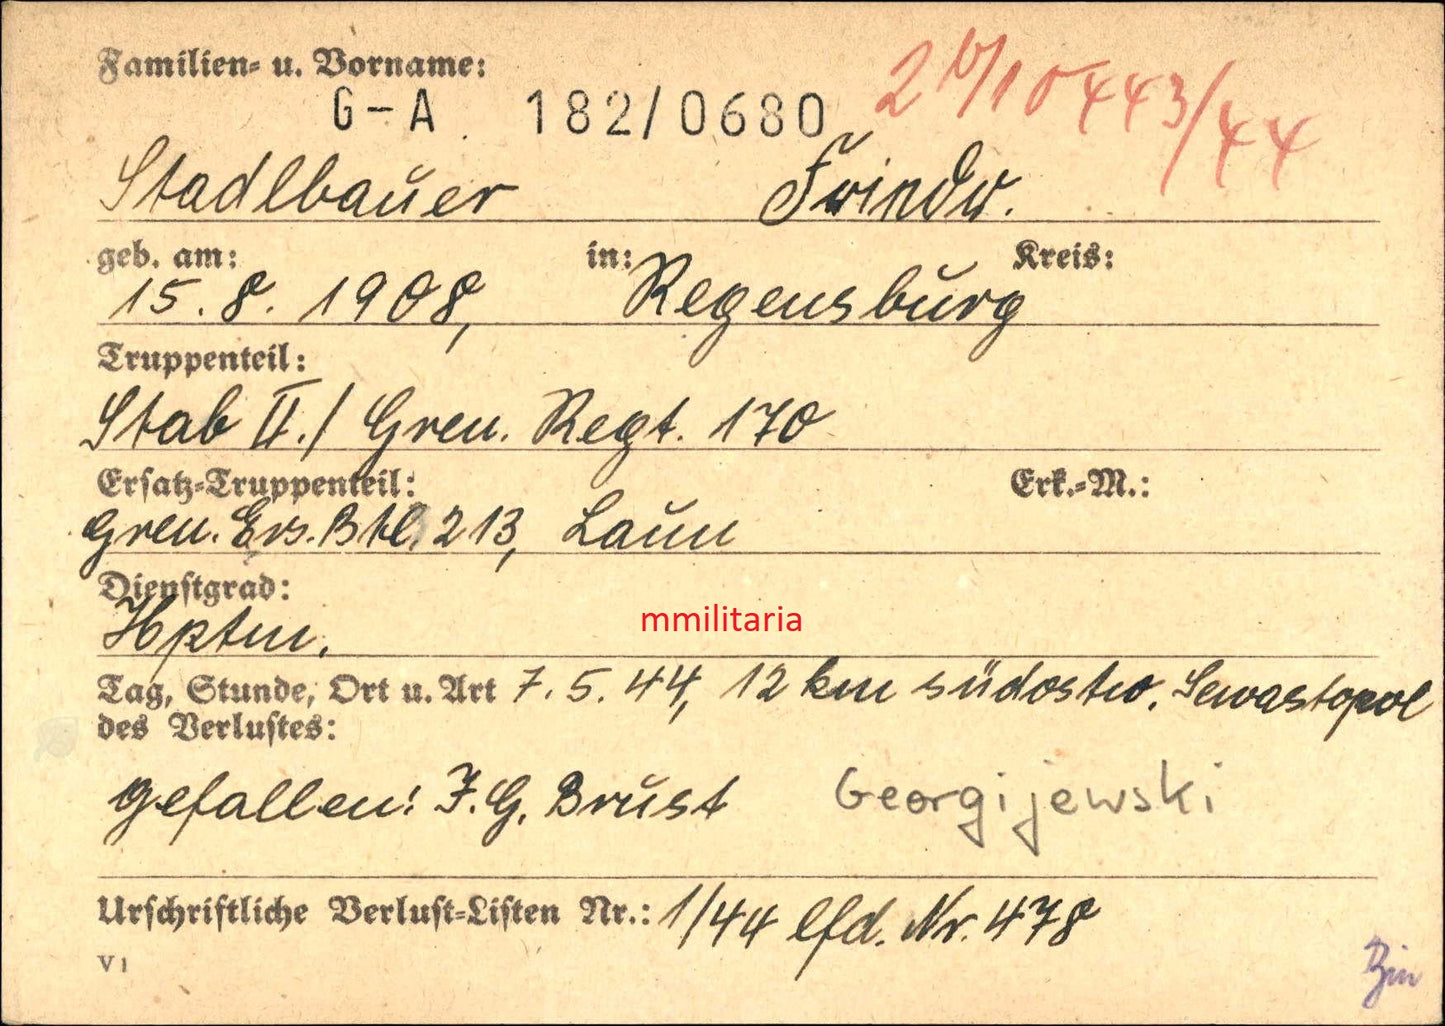 Familien- u. Vorname:
G-A 182/0680
Stadlbauer Friedr.
geb. am: in: Kreis:
15.8.1908, Regensburg
Truppenteil:
Stab II./ Gren. Regt. 170
Ersatz-Truppenteil: Erk.-M.:
Gren. Ers. Btl. 213, Laun
Dienstgrad:
Hptm.
Tag, Stunde, Ort u. Art 7.5.44, 12 km südostw. Sewastopol
des Verlustes:
gefallen: I.G. Brust Georgijewski
Urschriftliche Verlust-Listen Nr.: 1/44 lfd. Nr. 478
V 1
mmilitaria